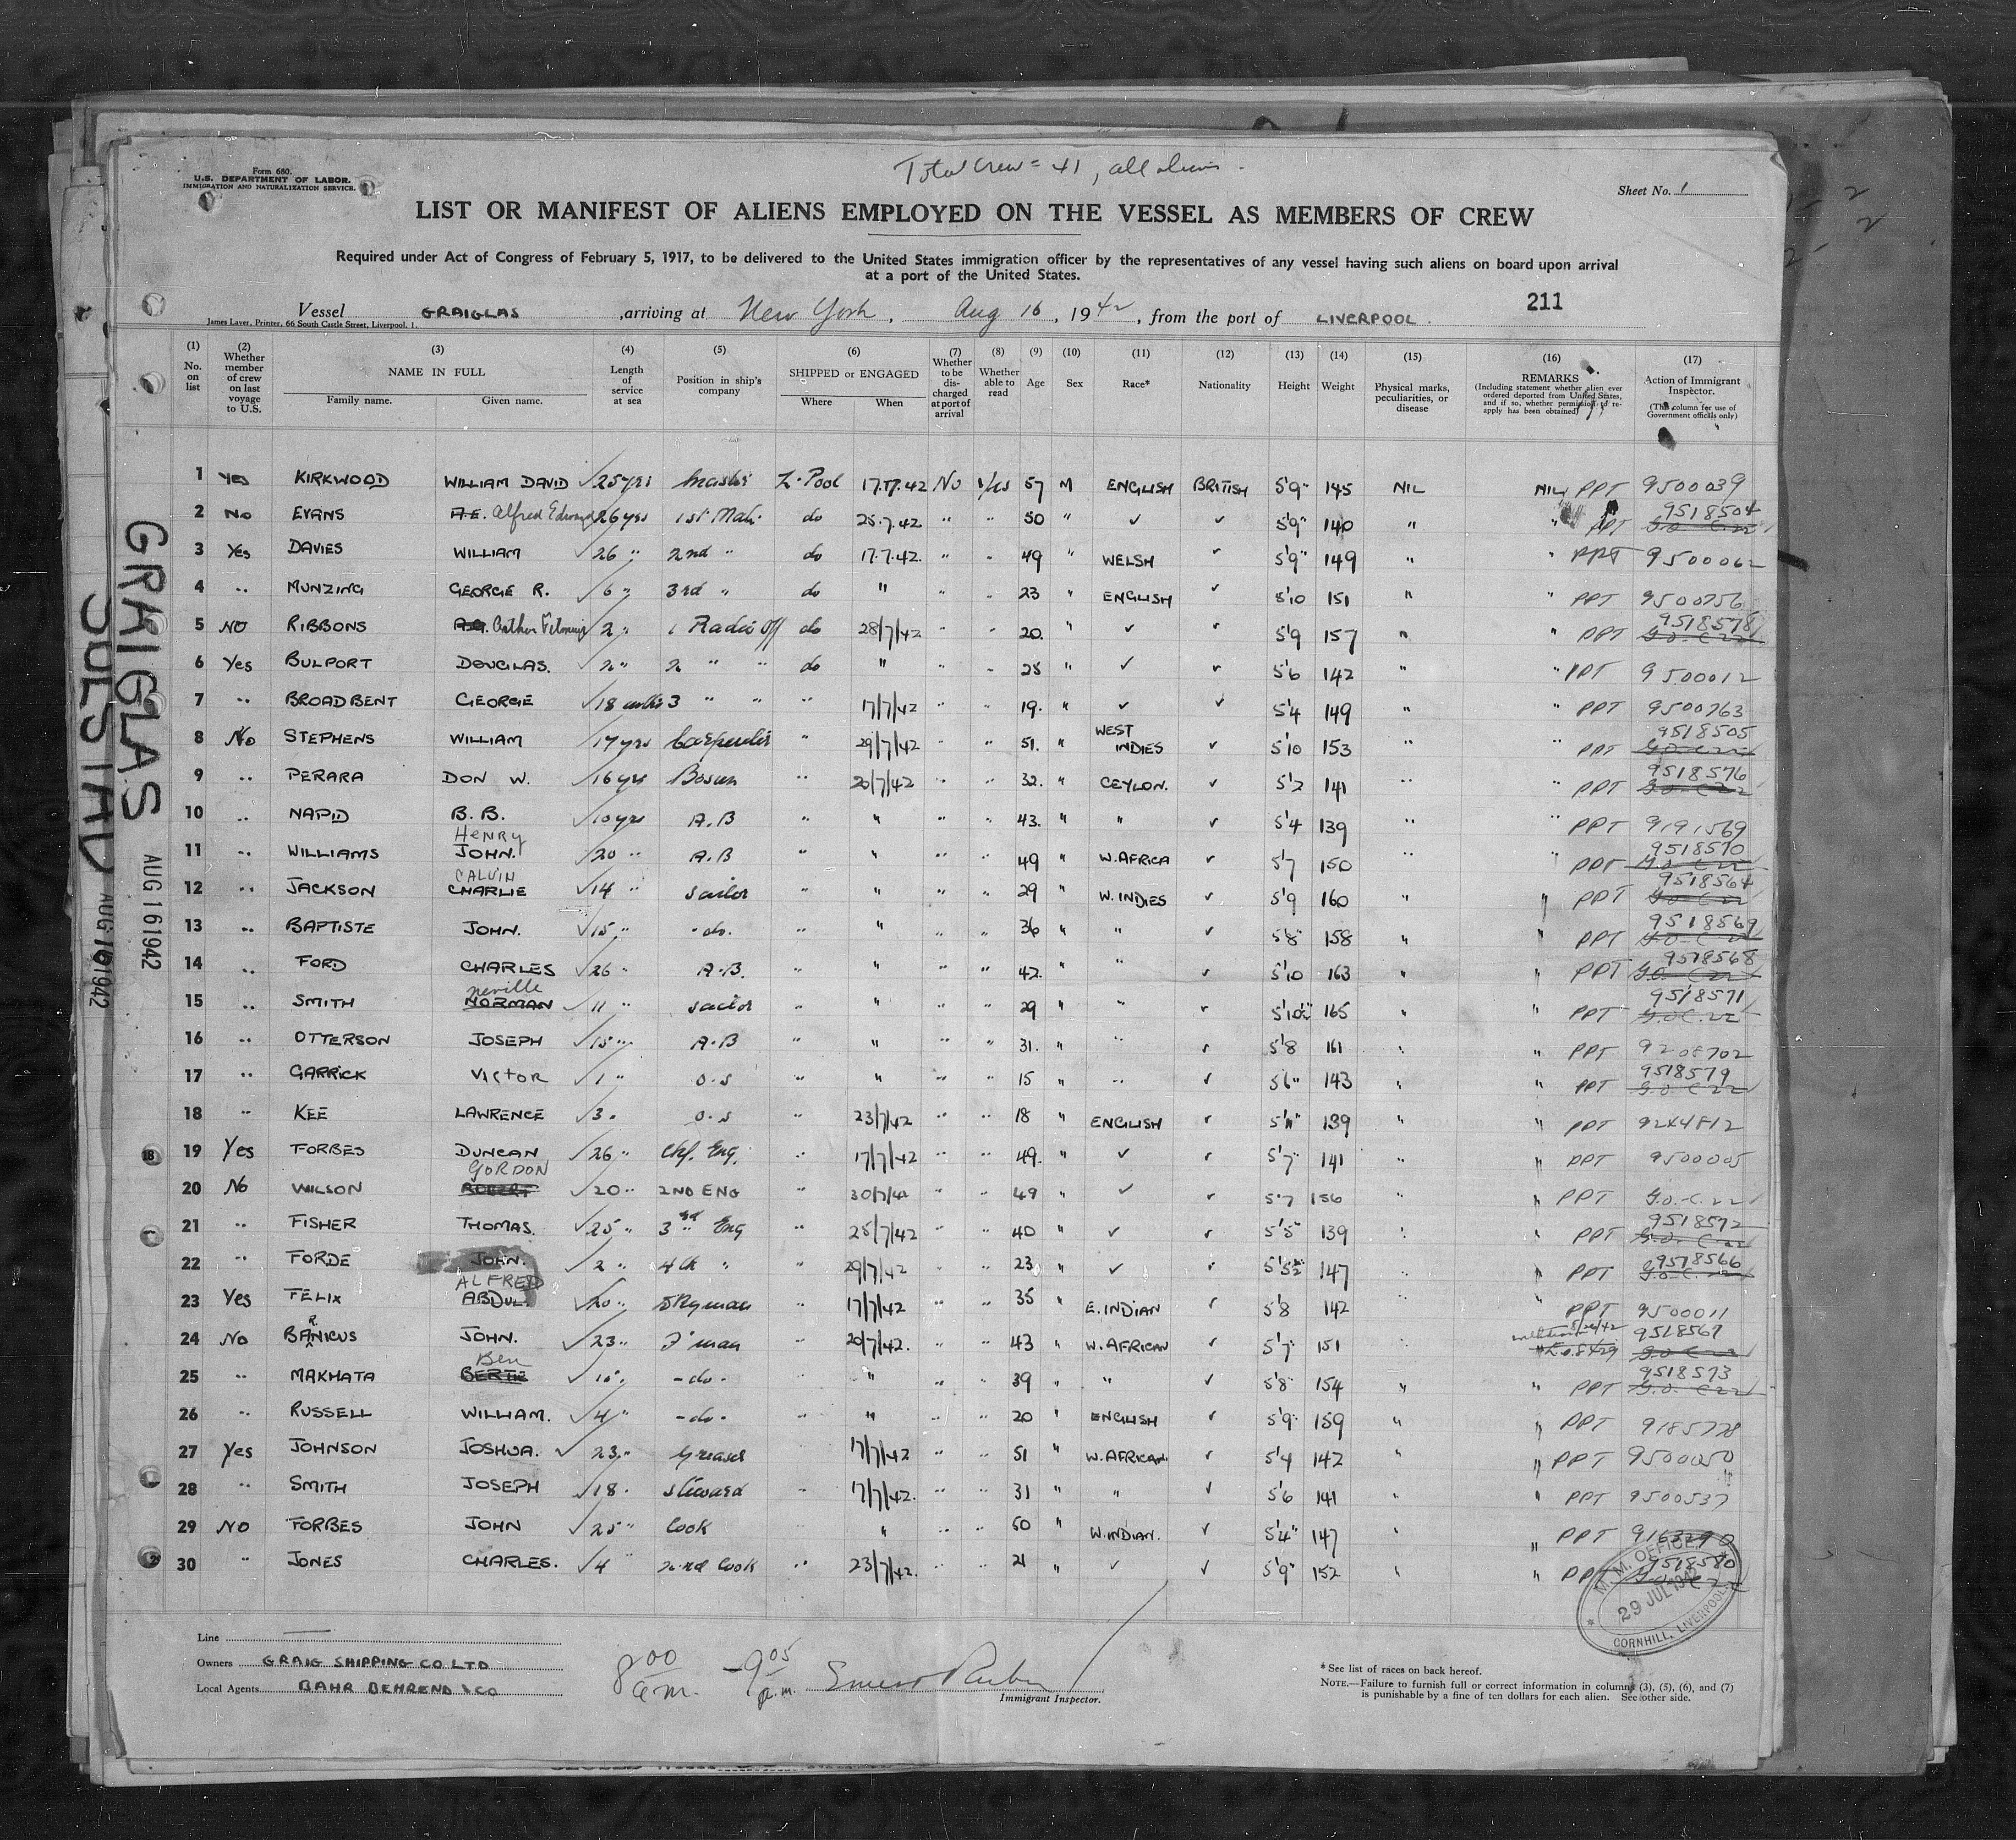 Total Crew = 41, all aliens.
Form 680.
U.S. DEPARTMENT OF LABOR.
IMMIGRATION AND NATURALIZATION SERVICE.
Sheet No. 1
LIST OR MANIFEST OF ALIENS EMPLOYED ON THE VESSEL AS MEMBERS OF CREW
Required under Act of Congress of February 5, 1917, to be delivered to the United States immigration officer by the representatives of any vessel having such aliens on board upon arrival
at a port of the United States.
211
Vessel GRAIGLAS, arriving at New York, Aug 16, 1942, from the port of LIVERPOOL.
James Laver, Printer, 66 South Castle Street, Liverpool, 1.
(1) No. on list (2) Whether member of crew on last voyage to U.S. (3) NAME IN FULL Family name. Given name. (4) Length of service at sea (5) Position in ship's company (6) SHIPPED or ENGAGED Where When (7) Whether to be discharged at port of arrival (8) Whether able to read (9) Age (10) Sex (11) Race* (12) Nationality (13) Height (14) Weight (15) Physical marks, peculiarities, or disease (16) REMARKS (Including statement whether alien ever ordered deported from United States, and if so, whether permission to reapply has been obtained) (17) Action of Immigrant Inspector. (This column for use of Government officials only)
1 Yes KIRKWOOD WILLIAM DAVID 25 yrs Master L-Pool 17.7.42 No Yes 57 M ENGLISH BRITISH 5'9" 145 NIL NIL PPT 9500039
2 No EVANS A.E. Alfred 26 yrs 1st Mate do 28.7.42 " " 50 " ✓ ✓ 5'9" 140 " " PPT 9518504 G.O. C.22
3 Yes DAVIES WILLIAM 26 " 2nd " do 17.7.42 " " 49 " WELSH ✓ 5'9" 149 " " PPT 9500062
4 " MUNZING GEORGE R. 6 " 3rd " do " " " 23 " ENGLISH ✓ 5'10 151 " " PPT 9500756
5 NO RIBBONS Arthur 2 " 1 Radio Off do 28/7/42 " " 20 " ✓ ✓ 5'9 157 " " PPT 9518578 G.O. C.22
6 Yes BULPORT DOUGLAS. 2 " 2 " " do " " " 25 " ✓ ✓ 5'6 142 " " PPT 9500012
7 " BROADBENT GEORGE 18 mths 3 " " " 17/7/42 " " 19 " ✓ ✓ 5'4 149 " " PPT 9500763
8 No STEPHENS WILLIAM 17 yrs Carpenter " 29/7/42 " " 51 " WEST INDIES ✓ 5'10 153 " " PPT 9518505 G.O. C.22
9 " PERARA DON W. 16 yrs Bosun " 20/7/42 " " 32 " CEYLON. ✓ 5'2 141 " " PPT 9518576 G.O. C.22
10 " NAPID B.B. 10 yrs A.B " " " " 43 " " ✓ 5'4 139 " " PPT 9191569
11 " WILLIAMS HENRY JOHN. 20 " A.B " " " " 49 " W.AFRICA ✓ 5'7 150 " " PPT 9518570 G.O. C.22
12 " JACKSON CALVIN CHARLIE 14 " Sailor " " " " 29 " W.INDIES ✓ 5'9 160 " " PPT 9518564 G.O. C.22
13 " BAPTISTE JOHN. 15 " -do. " " " " 36 " " ✓ 5'8" 158 " " PPT 9518569 G.O. C.22
14 " FORD CHARLES 26 " A.B. " " " " 42 " " ✓ 5'10 163 " " PPT 9518568 G.O. C.22
15 " SMITH neville NORMAN 11 " Sailor " " " " 29 " " ✓ 5'10½ 165 " " PPT 9518571 G.O. C.22
16 " OTTERSON JOSEPH 15 " A.B " " " " 31 " " ✓ 5'8 161 " " PPT 9208702
17 " GARRICK VICTOR 1 " O.S " " " " 15 " " ✓ 5'6" 143 " " PPT 9518579 G.O. C.22
18 " KEE LAWRENCE 3 " O.S " 23/7/42 " " 18 " ENGLISH ✓ 5'11" 139 " " PPT 9244812
19 Yes FORBES DUNCAN 26 " Chf. Eng. " 17/7/42 " " 49 " ✓ ✓ 5'7" 141 " " PPT 9500005
20 No WILSON GORDON ROBERT 20 " 2ND ENG " 30/7/42 " " 49 " ✓ ✓ 5'7 156 " " PPT G.O. C.22
21 " FISHER THOMAS. 25 " 3rd " Eng " 25/7/42 " " 40 " ✓ ✓ 5'5" 139 " " PPT 9518572 G.O. C.22
22 " FORDE JOHN. 2 " 4th " " 29/7/42 " " 23 " ✓ ✓ 5'5½ 147 " " PPT 9518566 G.O. C.22
23 Yes FELIX ALFRED ABDUL. 20 " " 17/7/42 " " 35 " E.INDIAN ✓ 5'8 142 " " PPT 9500011
24 No BARNICUS JOHN. 23 " F'man " 20/7/42. " " 43 " W.AFRICAN ✓ 5'7" 151 " 9518567 G.O. C.22
25 " MAKHATA Ben BERTIE " -do- " " " 39 " " ✓ 5'8" 154 " " PPT 9518573 G.O. C.22
26 " RUSSELL WILLIAM. 4 " -do- " " " " 20 " ENGLISH ✓ 5'9" 159 " " PPT 9185778
27 Yes JOHNSON JOSHUA. 23 " Greaser " 17/7/42 " " 51 " W.AFRICAN ✓ 5'4 142 " " PPT 9500050
28 " SMITH JOSEPH 18 " Steward " 17/7/42. " " 31 " " ✓ 5'6 141 " " PPT 9500537
29 NO FORBES JOHN 25 " Cook " " " 50 " W.INDIAN. ✓ 5'4" 147 " PPT 9163290
30 " JONES CHARLES. 4 " 2nd Cook " 23/7/42. " " 21 " ✓ ✓ 5'9" 152 " " PPT 9518580 G.O. C.22
GRAIGLAS AUG 16 1942
AUG 16 1942
M.M. OFFICE
29 JUL 1942
CORNHILL, LIVERPOOL
Line
Owners GRAIG SHIPPING CO LTD
Local Agents BAHR BEHREND & CO
8 00 a.m. - 9 05 p.m.
Immigrant Inspector.
* See list of races on back hereof.
NOTE.—Failure to furnish full or correct information in columns (3), (5), (6), and (7)
is punishable by a fine of ten dollars for each alien. See other side.